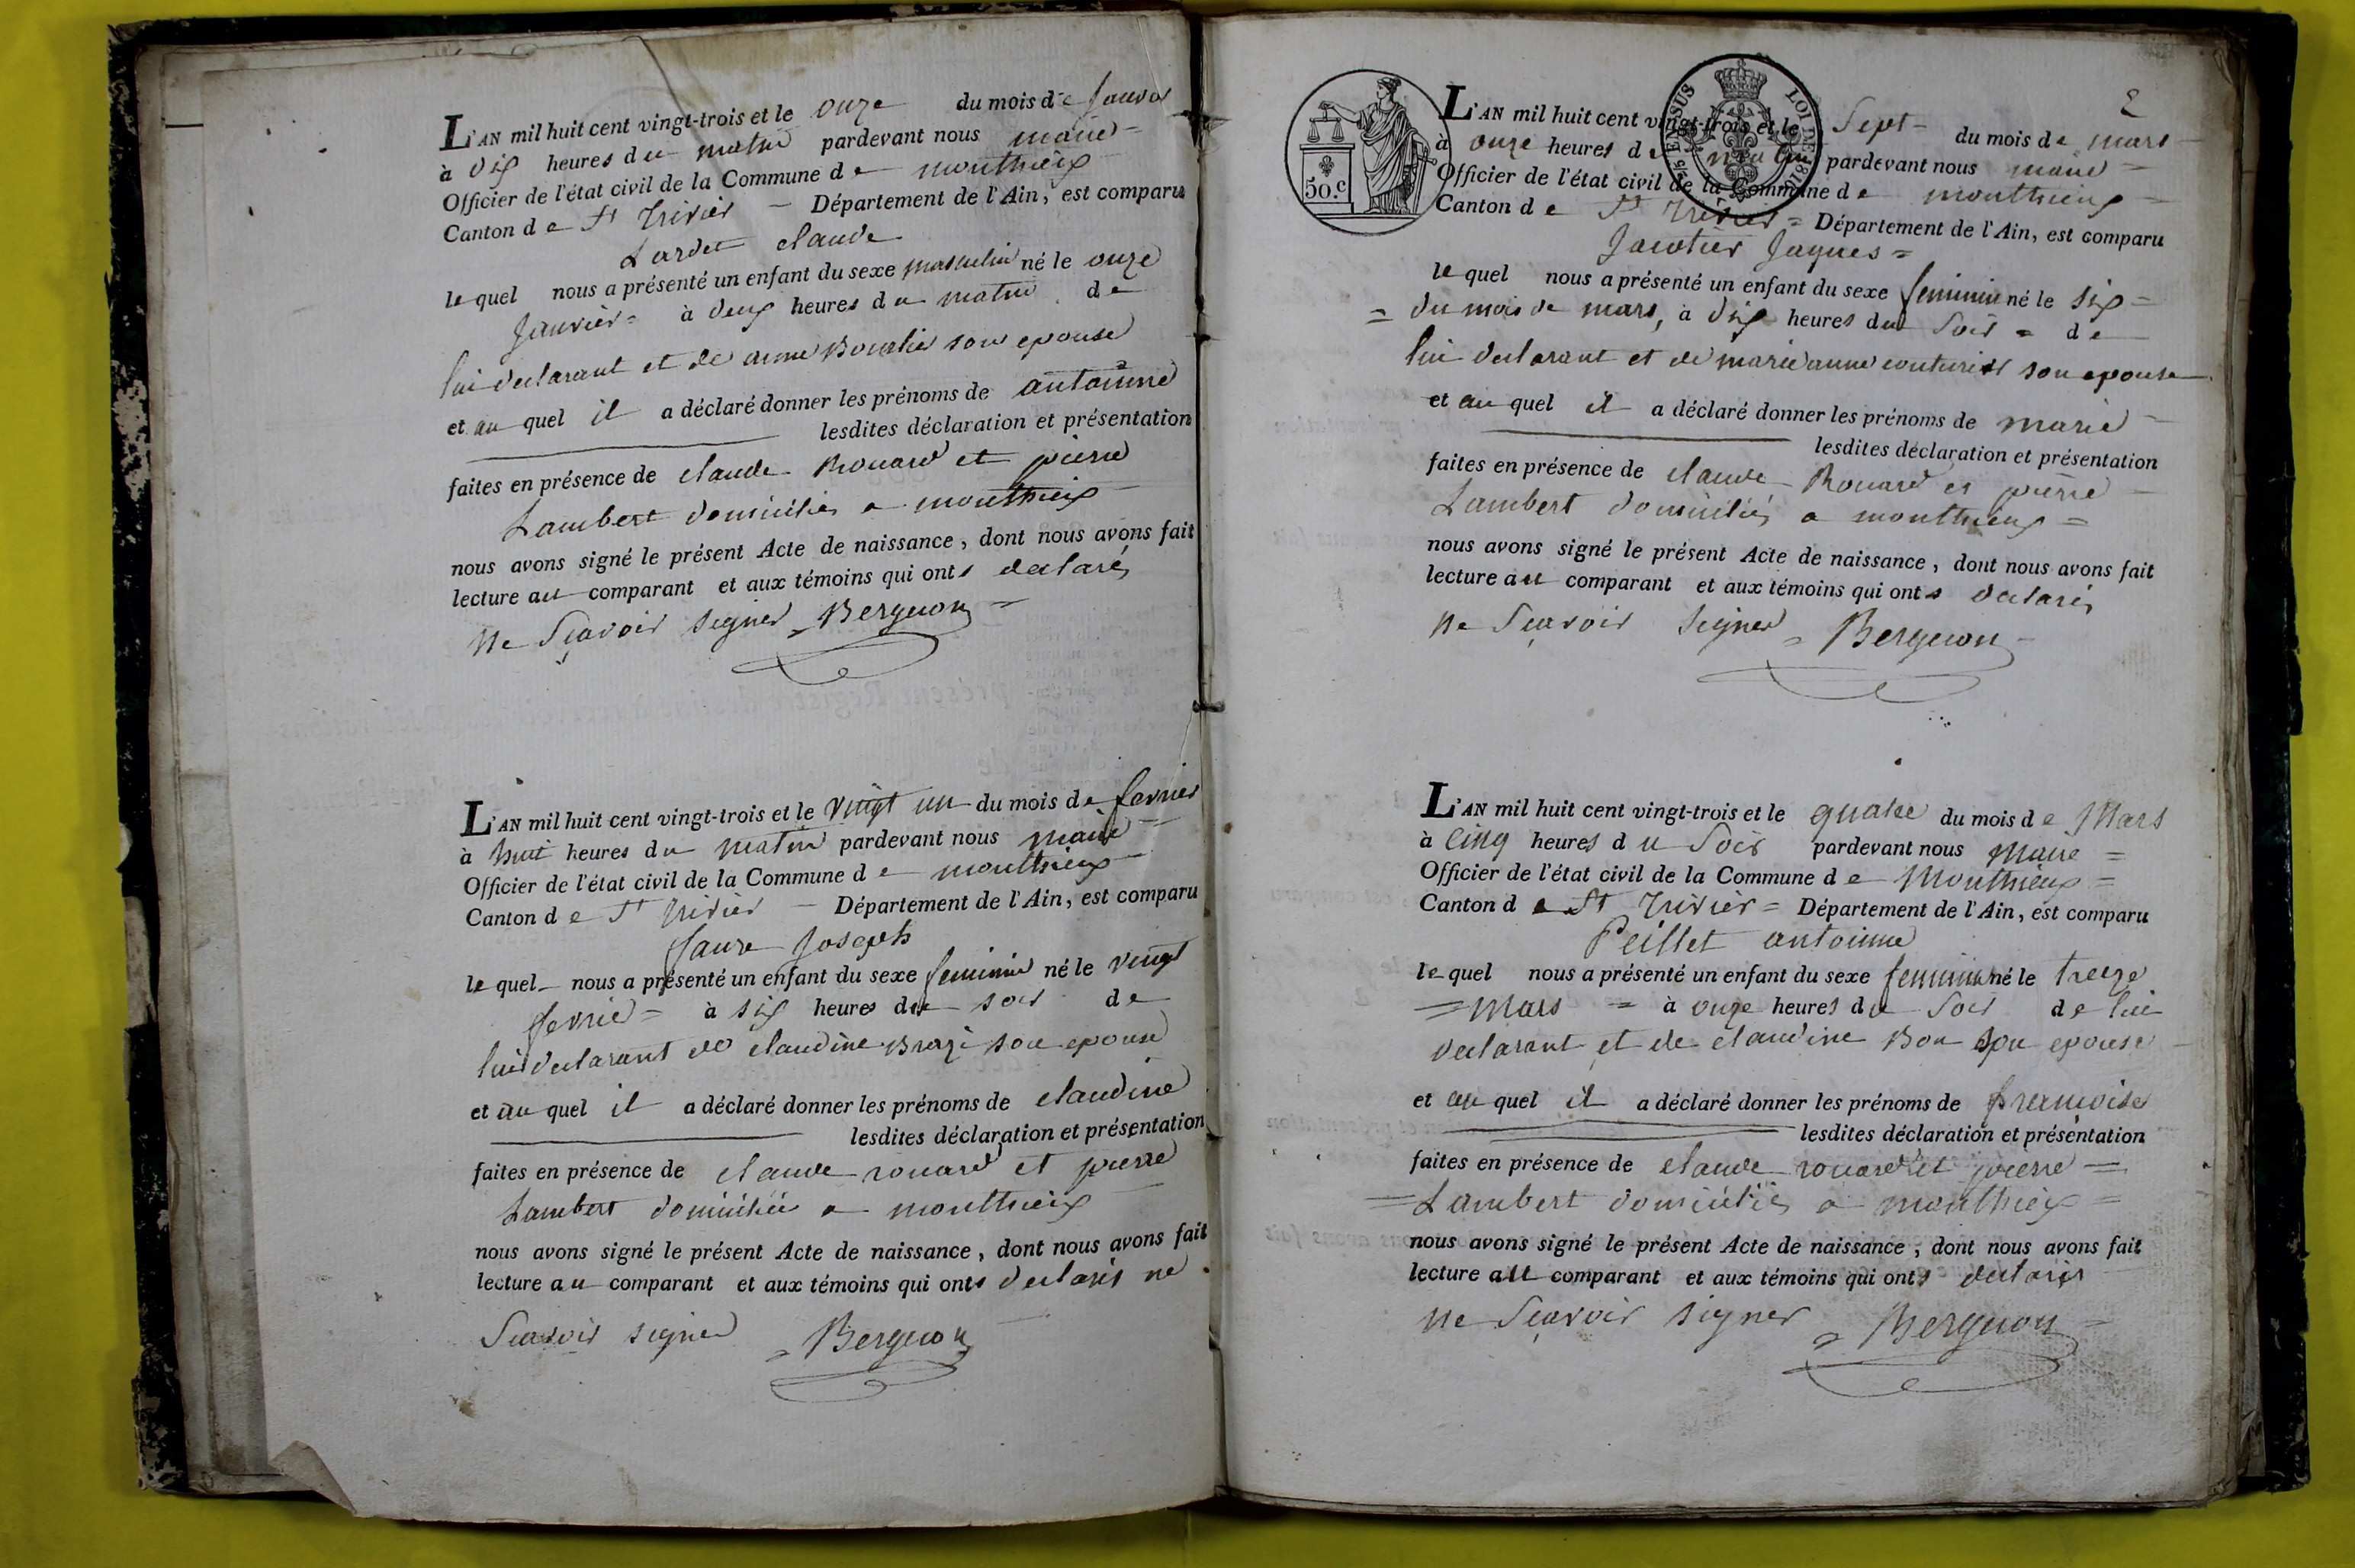 L'AN mil huit cent vingt-trois et le onze du mois de Janvier
à dix heures du matin pardevant nous maire =
Officier de l'état civil de la Commune de monthieux
Canton de St Trivier — Département de l'Ain, est comparu
Lardet claude
lequel nous a présenté un enfant du sexe masculin né le onze
Janvier = à deux heures du matin de
lui declarant et de anne son epouse
et au quel il a déclaré donner les prénoms de antoinne
lesdites déclaration et présentation
faites en présence de claude Rouard et pierre
Lambert domiciliés a monthieux
nous avons signé le présent Acte de naissance, dont nous avons fait
lecture au comparant et aux témoins qui onts declarés
ne Sçavoir signer = Bergeron =
L'AN mil huit cent vingt-trois et le vingt un du mois de fevrier
à huit heures du matin pardevant nous maire =
Officier de l'état civil de la Commune de monthieux
Canton de St Trivier — Département de l'Ain, est comparu
faure Joseph
lequel nous a présenté un enfant du sexe feminin né le vingt
fevrier = à six heures du soir de
lui declarant et de claudine son epouse
et au quel il a déclaré donner les prénoms de claudine
lesdites déclaration et présentation
faites en présence de claude rouard et pierre
Lambert domiciliés a monthieux
nous avons signé le présent Acte de naissance, dont nous avons fait
lecture au comparant et aux témoins qui onts declarés ne
Scavoir signer = Bergeron
2
50.c
EN SUS
LOI DE 1816
L'AN mil huit cent vingt-trois et le Sept = du mois de mars
à onze heures de matin pardevant nous maire =
Officier de l'état civil de la Commune de monthieux =
Canton de St Trivier = Département de l'Ain, est comparu
Jacotier Jaques =
lequel nous a présenté un enfant du sexe feminin né le six =
= du mois de mars, à dix heures du Soir = de
lui declarant et de marie anne couturier son epouse
et au quel il a déclaré donner les prénoms de marie
lesdites déclaration et présentation
faites en présence de claude Rouard et pierre
Lambert domiciliés a monthieux =
nous avons signé le présent Acte de naissance, dont nous avons fait
lecture au comparant et aux témoins qui onts declarés
ne Sçavoir signer = Bergeron
L'AN mil huit cent vingt-trois et le du mois de Mars
à cinq heures du Soir pardevant nous Maire =
Officier de l'état civil de la Commune de Monthieux =
Canton de St Trivier = Département de l'Ain, est comparu
Peillet antoinne
lequel nous a présenté un enfant du sexe feminin né le treize
= Mars = à onze heures du Soir de lui
declarant et de claudine Bon son epouse
et au quel il a déclaré donner les prénoms de francoise
lesdites déclaration et présentation
faites en présence de claude rouard et pierre =
= Lambert domiciliés a monthieux =
nous avons signé le présent Acte de naissance, dont nous avons fait
lecture au comparant et aux témoins qui onts declarés
ne Sçavoir signer = Bergeron